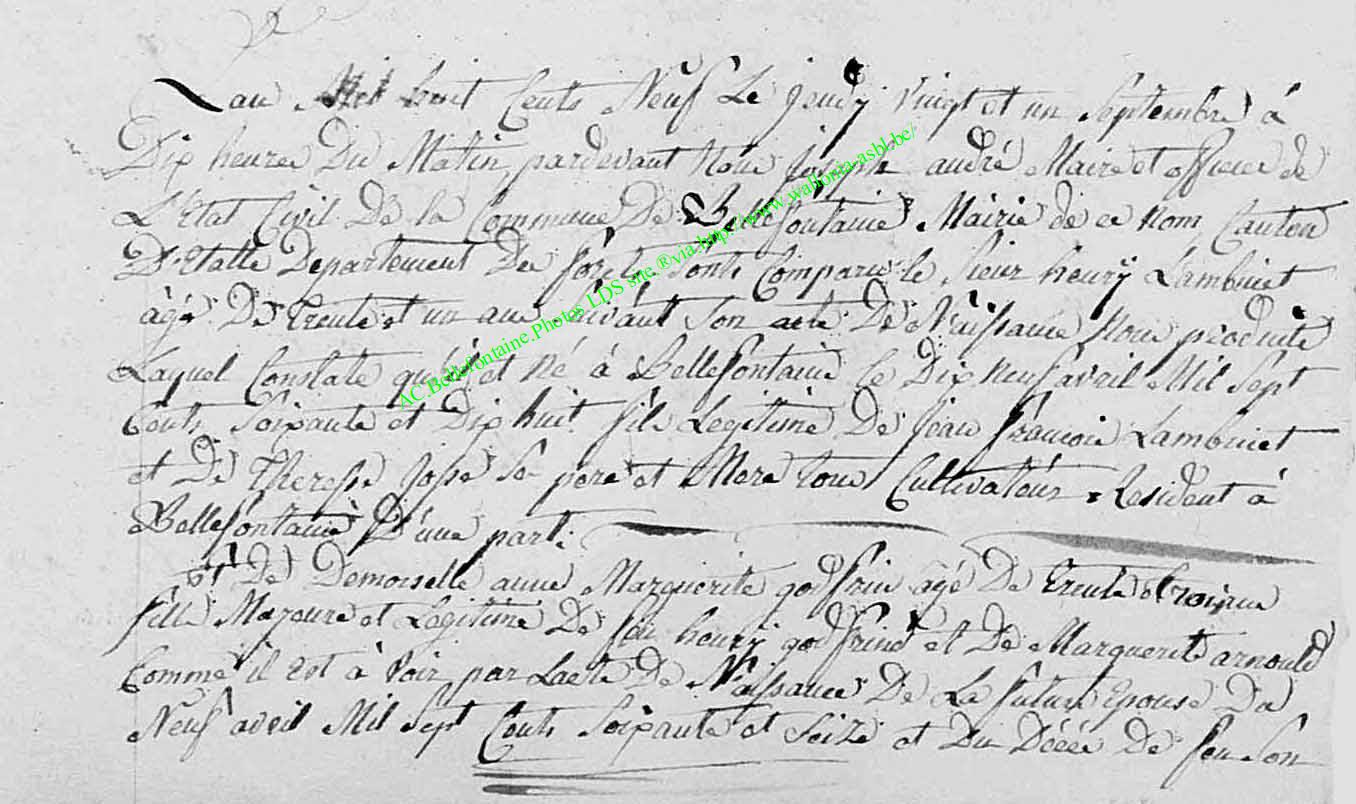 Lan Mil huit Cents Neuf Le jeudy vingt et un Septembre à
Dix heures Du Matin, pardevant Nous Joseph andré Maire et officier de
L'Etat Civil De la Commune De Bellefontaine Mairie de ce Nom, Canton
D'Etalle Departement Des forêts Sonts Comparus le Sieur henry Lambinet
âgé De Trente et un ans suivant Son acte De Naissance Nous produite
Laquel Constate qu'il est Né à Bellefontaine le Dix Neuf avril Mil Sept
Cents Soixante et Dix huit fils Legitime De Jean françois Lambinet
et De Therese Jose se pere et Mere tous Cultivateur Resident à
Bellefontaine D'une part.
et De Demoiselle anne Marguerite godfrin agé De Trente trois ans
fille Majeure et Legitime De feu henry godfrind et De Marguerite arnould
Comme il est à Voir par Lacte De Naissance De La future Epouse Du
Neuf avril Mil Sept Cents Soixante et Seize et Du Décée De feu Son
AC.Bellefontaine.Photos LDS site ®via http://www.wallonia-asbl.be/